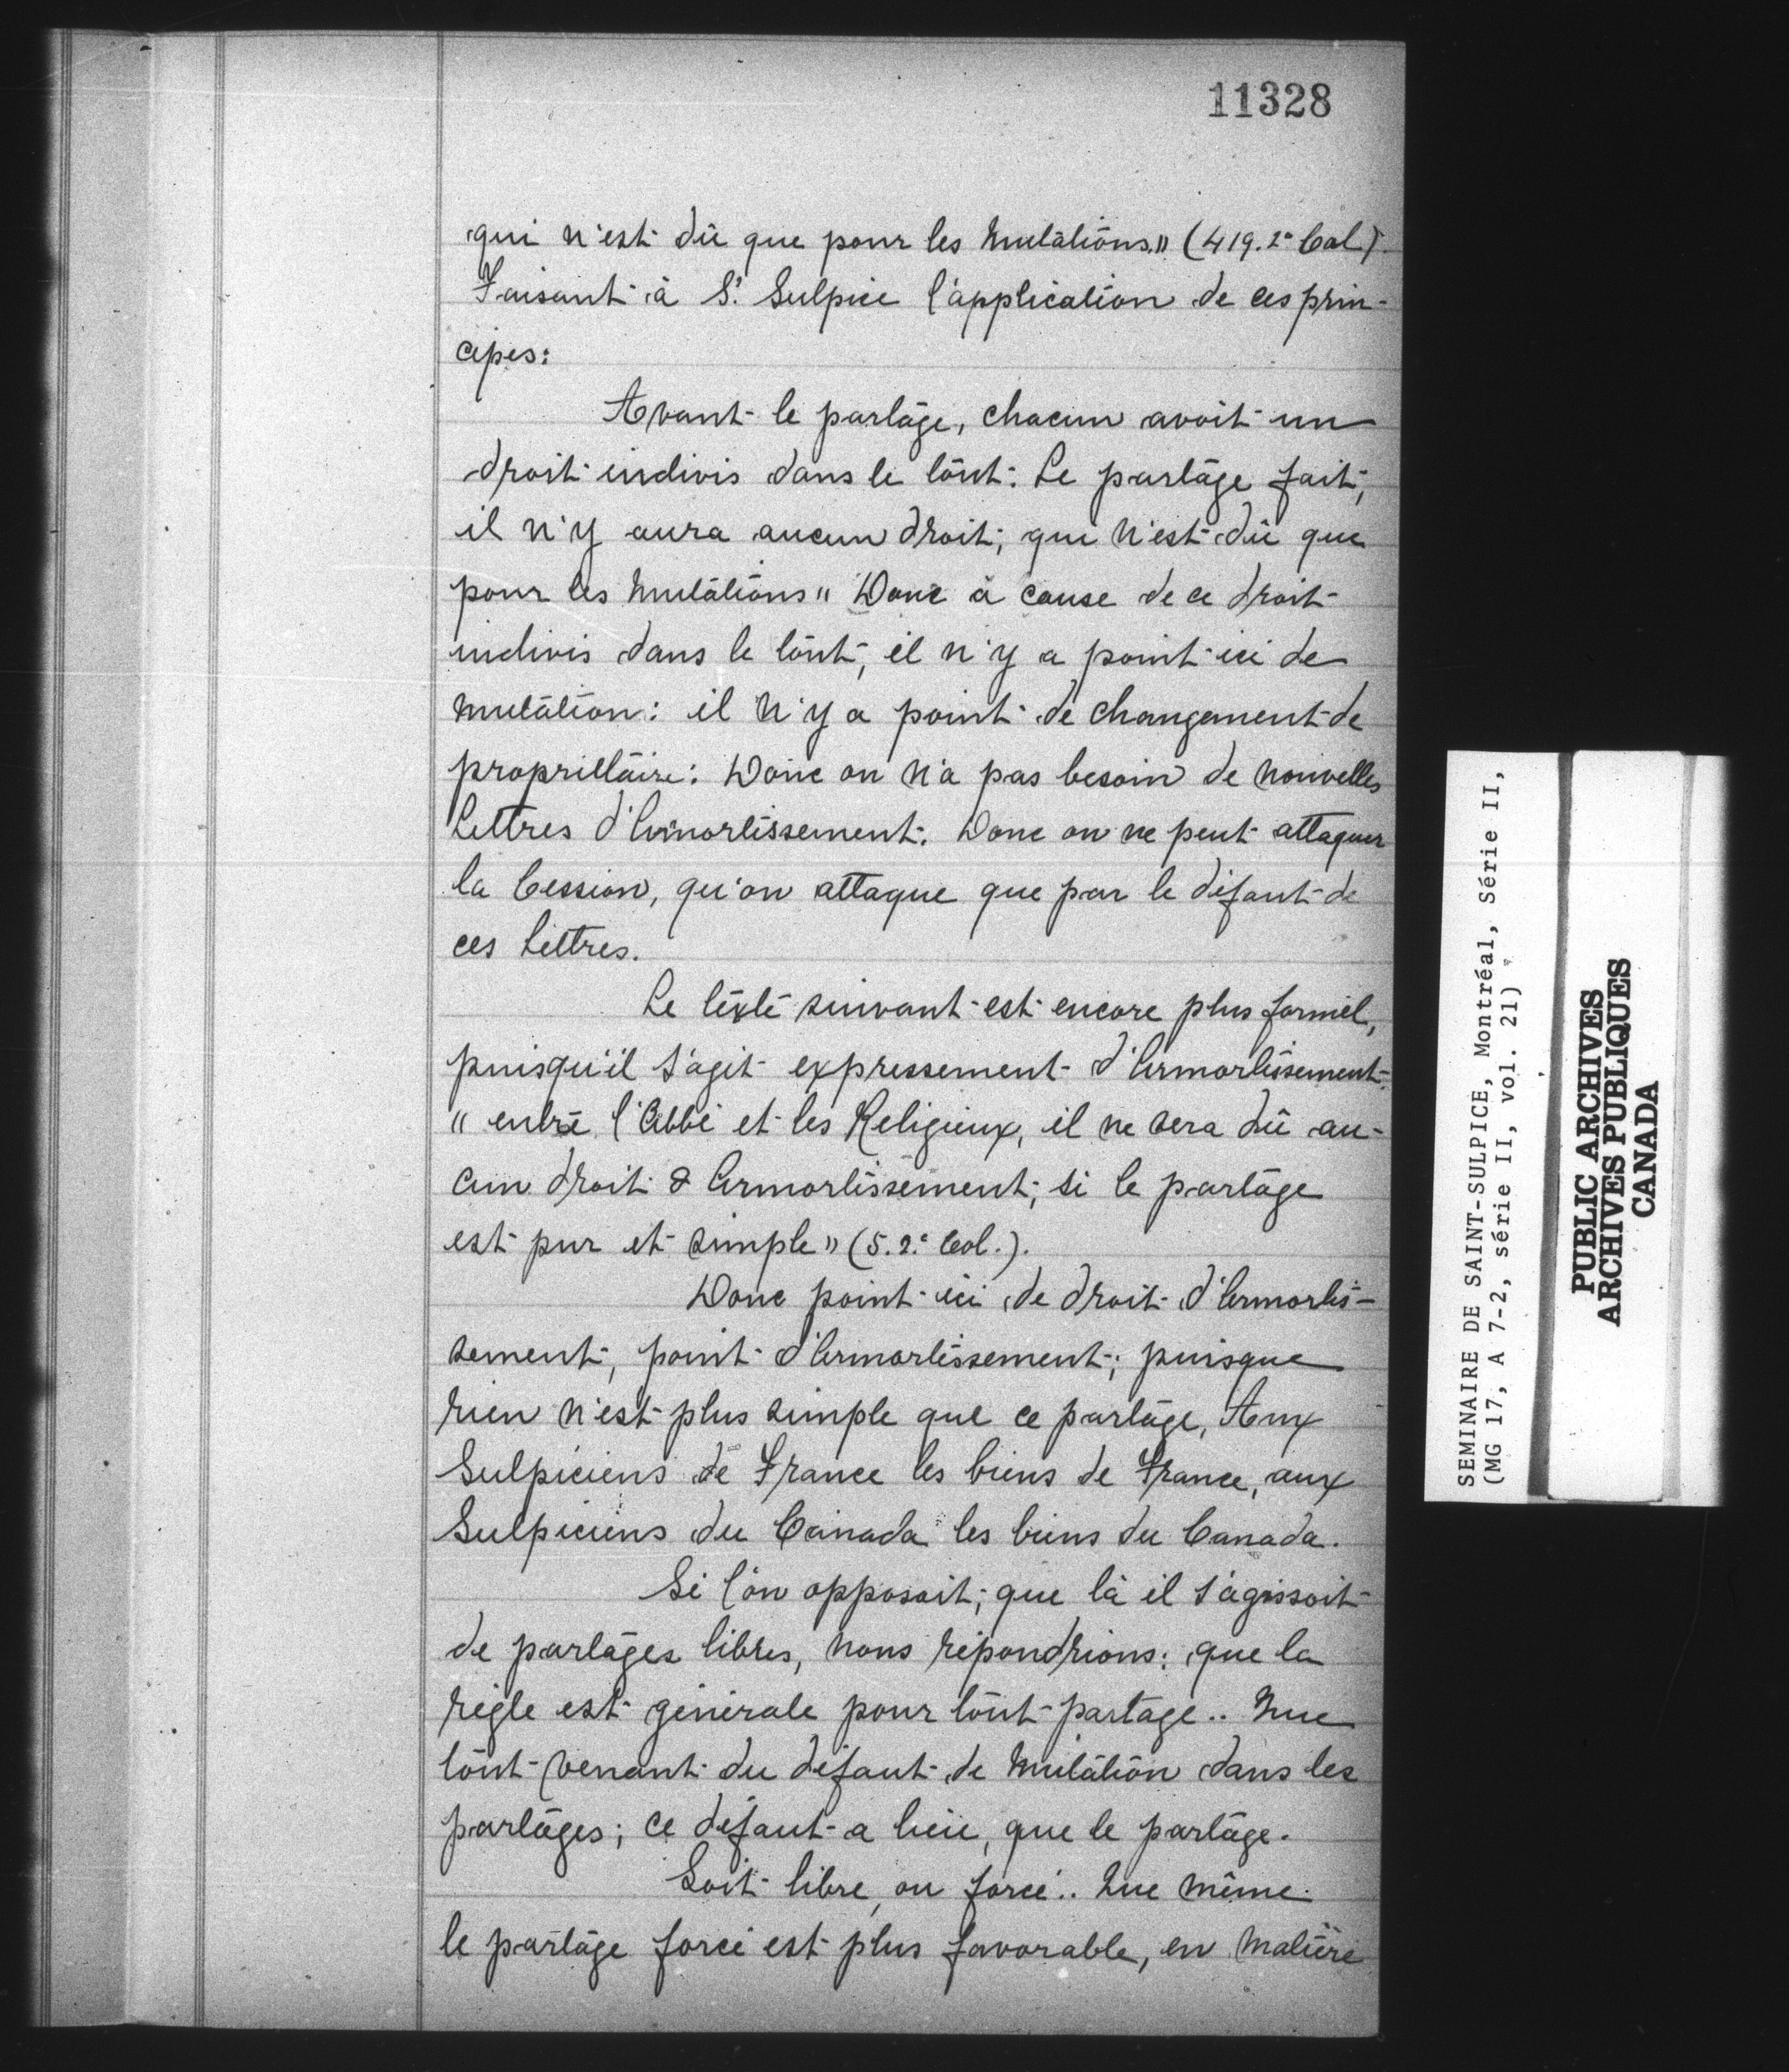 11328
qui n'est dû que pour les Mutations." (419. 2e Col.).
Faisant à St. Sulpice l'application de ces prin-
cipes:
Avant le partage, chacun avoit un
droit indivis dans le tout: Le partage fait,
il n'y aura aucun droit; qui n'est dû que
pour les Mutations" Donc à cause de ce droit
indivis dans le tout, il n'y a point ici de
Mutation: il n'y a point de changement de
propriétaire: Donc on n'a pas besoin de nouvelles
Lettres d'Amortissement. Donc on ne peut attaquer
la Cession, qu'on attaque que par le défaut de
ces Lettres.
Le texte suivant est encore plus formel,
puisqu'il s'agit expressement d'Amortissement.
" entre l'Abbé et les Religieux, il ne sera dû au-
cun droit d'Amortissement, si le partage
est pur et simple" (5. 2e Col.).
Donc point ici de droit d'Amortis-
sement, point d'Amortissement; puisque
rien n'est plus simple que ce partage, Aux
Sulpiciens de France les biens de France, aux
Sulpiciens du Canada les biens du Canada.
Si l'on opposoit, que là il s'agissoit
de partages libres, nous répondrions: que la
règle est générale pour tout partage.. Que
tout venant du défaut de Mutation dans les
partages; ce défaut a lieu, que le partage.
Soit libre, ou forcé.. Que même
le partage forcé est plus favorable, en Matière
SEMINAIRE DE SAINT-SULPICE, Montréal, Série II,
(MG 17, A 7-2, série II, vol. 21)
PUBLIC ARCHIVES
ARCHIVES PUBLIQUES
CANADA